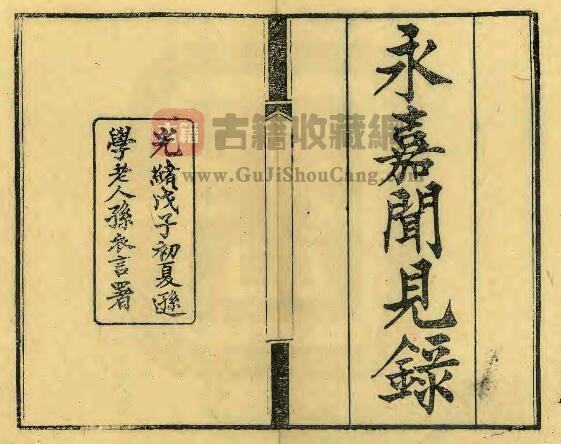 永嘉聞見錄
光緒戊子初夏遜
學老人孫衣言署
古籍
古籍收藏網
www.GuJiShouCang.com